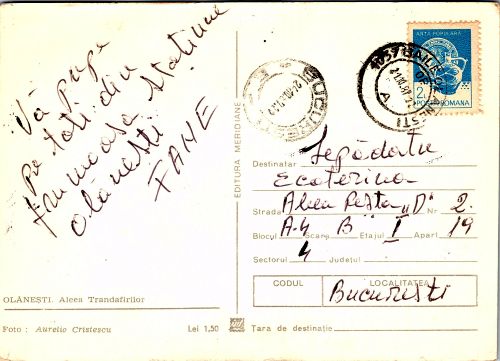 Vă pup
pe toți din
frumoasa stațiune
Olănești
FANE
OLĂNEȘTI. Aleea Trandafirilor
Foto : Aurelio Cristescu
Lei 1,50
EDITURA MERIDIANE
BUCUREȘTI
ARTA POPULARĂ
POSTA ROMANA
Destinatar Lepădatu
Ecaterina
Strada Aleea Resta „D" Nr. 2.
Blocul A-4 Scara B Etajul I Apart 19
Sectorul 4 Județul
CODUL
LOCALITATEA
București
Țara de destinație